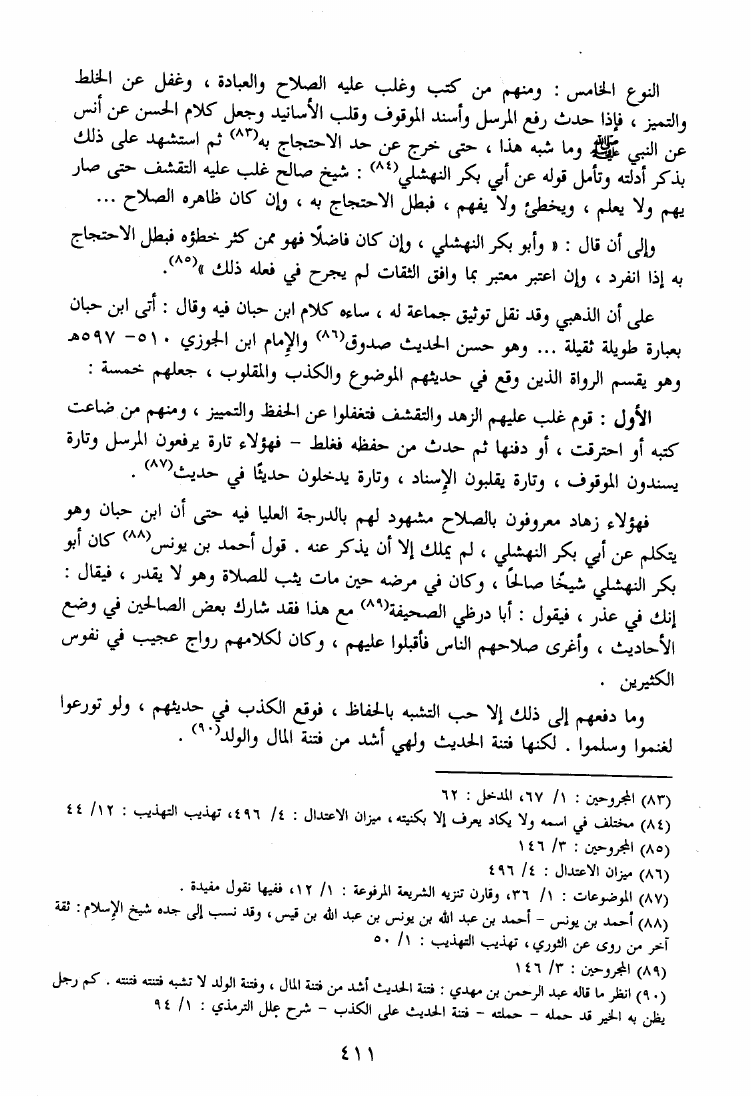 النوع الخامس : ومنهم من كتب وغلب عليه الصلاح والعبادة ، وغفل عن الخلط
والتميز ، فإذا حدث رفع المرسل وأسند الموقوف وقلب الأسانيد وجعل كلام الحسن عن أنس
عن النبي ﷺ وما شبه هذا ، حتى خرج عن حد الاحتجاج به(٨٣) ثم استشهد على ذلك
بذكر أدلته وتأمل قوله عن أبي بكر النهشلي(٨٤) : شيخ صالح غلب عليه التقشف حتى صار
يهم ولا يعلم ، ويخطئ ولا يفهم ، فبطل الاحتجاج به ، وإن كان ظاهره الصلاح ...
وإلى أن قال : « وأبو بكر النهشلي ، وإن كان فاضلًا فهو ممن كثر خطؤه فبطل الاحتجاج
به إذا انفرد ، وإن اعتبر معتبر بما وافق الثقات لم يجرح في فعله ذلك »(٨٥).
على أن الذهبي وقد نقل توثيق جماعة له ، ساءه كلام ابن حبان فيه وقال : أتى ابن حبان
بعبارة طويلة ثقيلة ... وهو حسن الحديث صدوق(٨٦) والإمام ابن الجوزي ٥١٠- ٥٩٧هـ
وهو يقسم الرواة الذين وقع في حديثهم الموضوع والكذب والمقلوب ، جعلهم خمسة :
الأول : قوم غلب عليهم الزهد والتقشف فتغفلوا عن الحفظ والتمييز ، ومنهم من ضاعت
كتبه أو احترقت ، أو دفنها ثم حدث من حفظه فغلط - فهؤلاء تارة يرفعون المرسل وتارة
يسندون الموقوف ، وتارة يقلبون الإسناد ، وتارة يدخلون حديثًا في حديث(٨٧) .
فهؤلاء زهاد معروفون بالصلاح مشهود لهم بالدرجة العليا فيه حتى أن ابن حبان وهو
يتكلم عن أبي بكر النهشلي ، لم يملك إلا أن يذكر عنه . قول أحمد بن يونس(٨٨) كان أبو
بكر النهشلي شيخًا صالحًا ، وكان في مرضه حين مات يثب للصلاة وهو لا يقدر ، فيقال :
إنك في عذر ، فيقول : أبا درظي الصحيفة(٨٩) مع هذا فقد شارك بعض الصالحين في وضع
الأحاديث ، وأغرى صلاحهم الناس فأقبلوا عليهم ، وكان لكلامهم رواج عجيب في نفوس
الكثيرين .
وما دفعهم إلى ذلك إلا حب التشبه بالحفاظ ، فوقع الكذب في حديثهم ، ولو تورعوا
لغنموا وسلموا . لكنها فتنة الحديث ولهي أشد من فتنة المال والولد(٩٠) .
(٨٣) المجروحين : ١/ ٦٧، المدخل : ٦٢
(٨٤) مختلف في اسمه ولا يكاد يعرف إلا بكنيته، ميزان الاعتدال : ٤/ ٤٩٦، تهذيب التهذيب : ١٢/ ٤٤
(٨٥) المجروحين : ٣/ ١٤٦
(٨٦) ميزان الاعتدال : ٤/ ٤٩٦
(٨٧) الموضوعات : ١/ ٣٦، وقارن تنزيه الشريعة المرفوعة : ١/ ١٢، ففيها نقول مفيدة .
(٨٨) أحمد بن يونس - أحمد بن عبد الله بن يونس بن عبد الله بن قيس، وقد نسب إلى جده شيخ الإسلام: ثقة
آخر من روى عن الثوري، تهذيب التهذيب : ١/ ٥٠
(٨٩) المجروحين : ٣/ ١٤٦
(٩٠) انظر ما قاله عبد الرحمن بن مهدي : فتنة الحديث أشد من فتنة المال ، وفتنة الولد لا تشبه فتنته فتنته . كم رجل
يظن به الخير قد حمله - حملته - فتنة الحديث على الكذب - شرح علل الترمذي : ١/ ٩٤
٤١١